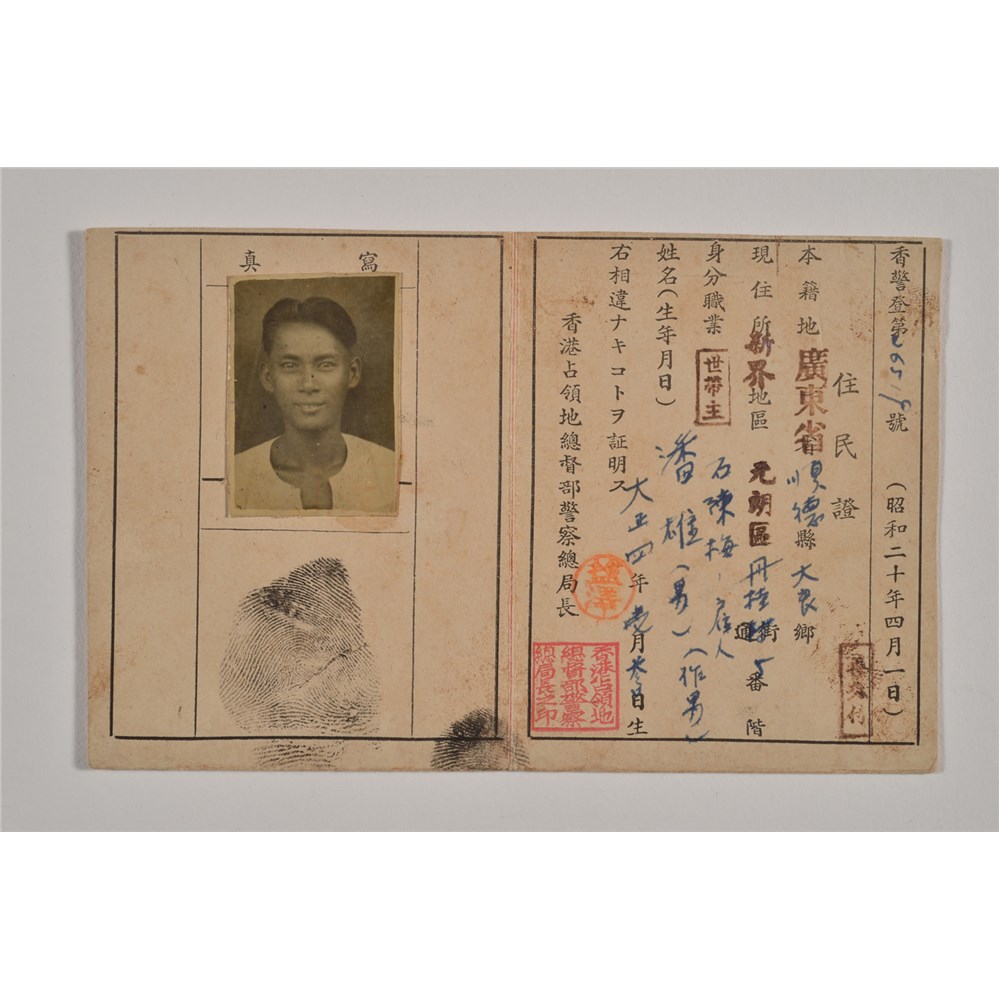 香警登第 號 (昭和二十年四月一日)
住民證
本籍地 廣東省 順德縣 大良鄉
現住所 新界地區 元朗區 丹桂 街通 5番 階
身分職業 世帶主 石陳梅 雇人
姓名(生年月日) 潘雄(男)(作男)
大正四年 月 日生
右相違ナキコトヲ証明ス
香港占領地總督部警察總局長
鹽澤
香港占領地
總督部警察
總局長之印
寫真